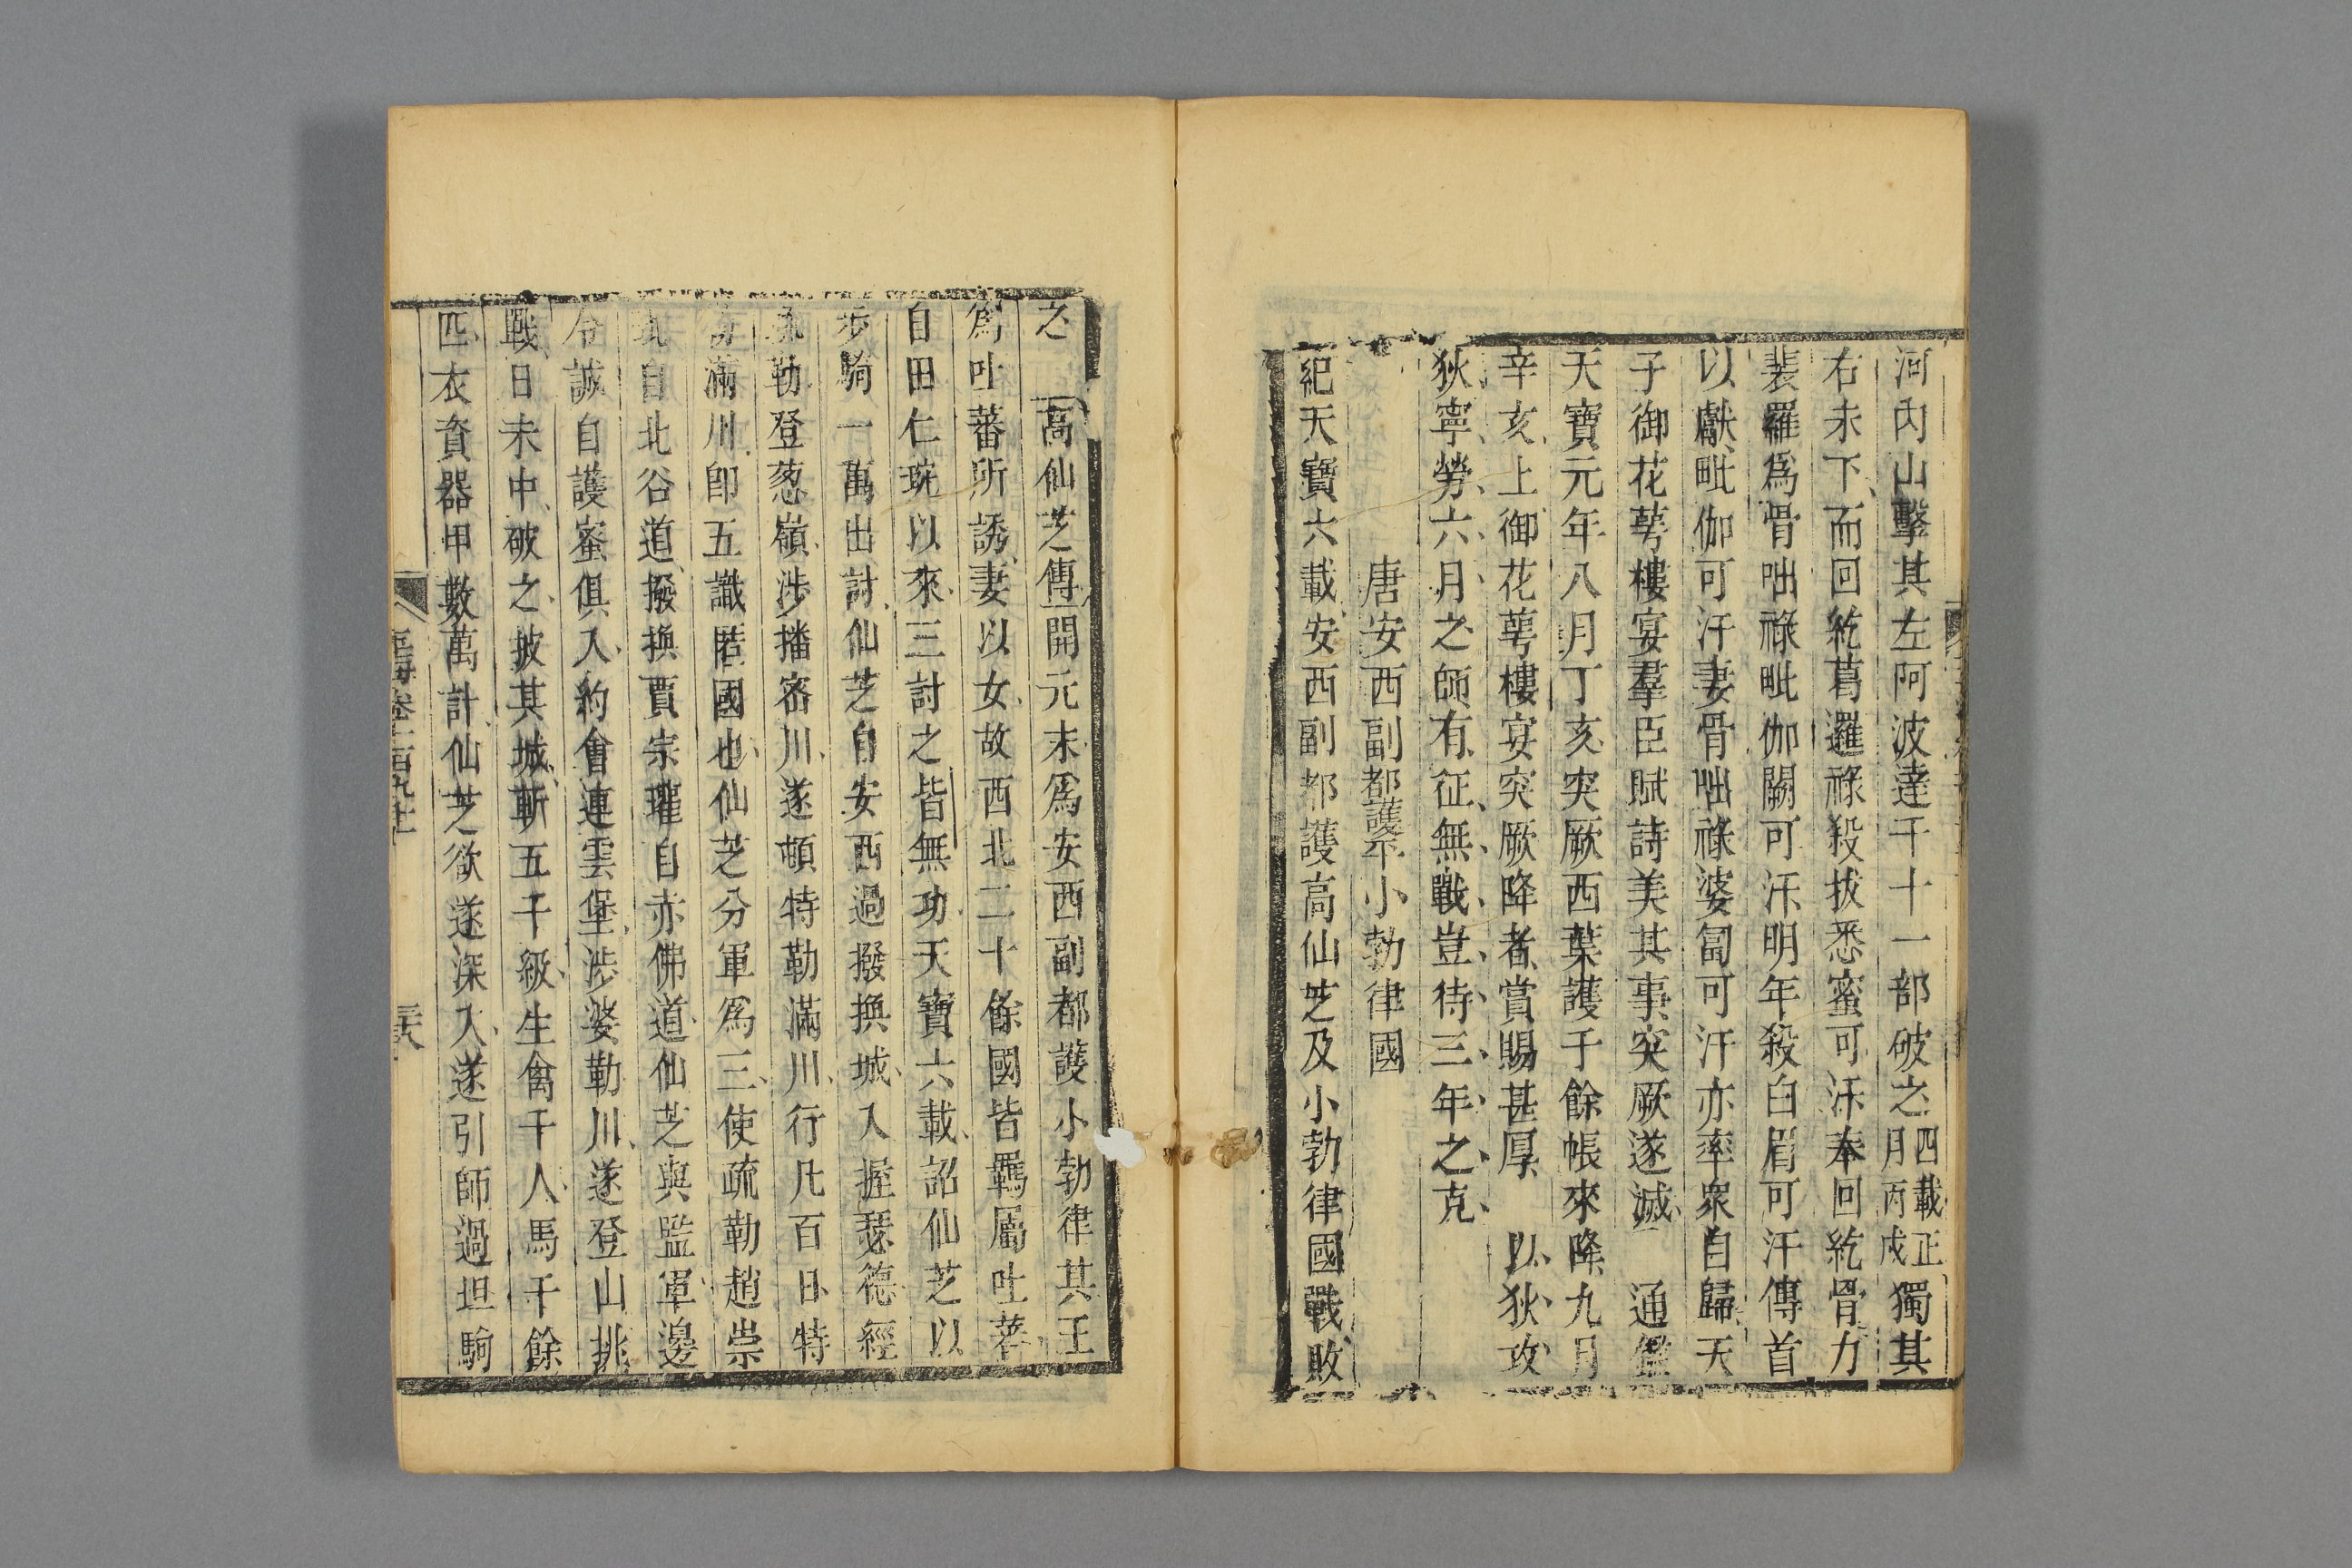 河內山擊其左阿波達干十一部破之四載正月丙戌獨其
右未下而回紇葛邏祿殺拔悉蜜可汗奉回紇骨力
裴羅爲骨咄祿毗伽闕可汗明年殺白眉可汗傳首
以獻毗伽可汗妻骨咄祿婆匐可汗亦率衆自歸天
子御花萼樓宴羣臣賦詩美其事突厥遂滅 通鑑
天寶元年八月丁亥突厥西葉護千餘帳來降九月
辛亥上御花萼樓宴突厥降者賞賜甚厚 以狄攻
狄寧勞六月之師有征無戰豈待三年之克
唐安西副都護平小勃律國
紀天寶六載安西副都護高仙芝及小勃律國戰敗
之 高仙芝傳開元末爲安西副都護小勃律其王
爲吐蕃所誘妻以女故西北二十餘國皆羈屬吐蕃
自田仁琬以來三討之皆無功天寶六載詔仙芝以
步騎一萬出討仙芝自安西過撥換城入握瑟德經
疏勒登葱嶺涉播密川遂頓特勒滿川行凡百日特
勒滿川卽五識匿國也仙芝分軍爲三使疏勒趙崇
玼自北谷道撥換賈崇瓘自赤佛道仙芝與監軍邊
令誠自護蜜俱入約會連雲堡涉婆勒川遂登山挑
戰日未中破之披其城斬五千級生禽千人馬千餘
匹衣資器甲數萬計仙芝欲遂深入遂引師過坦駒
玉海卷一百九十一
三六